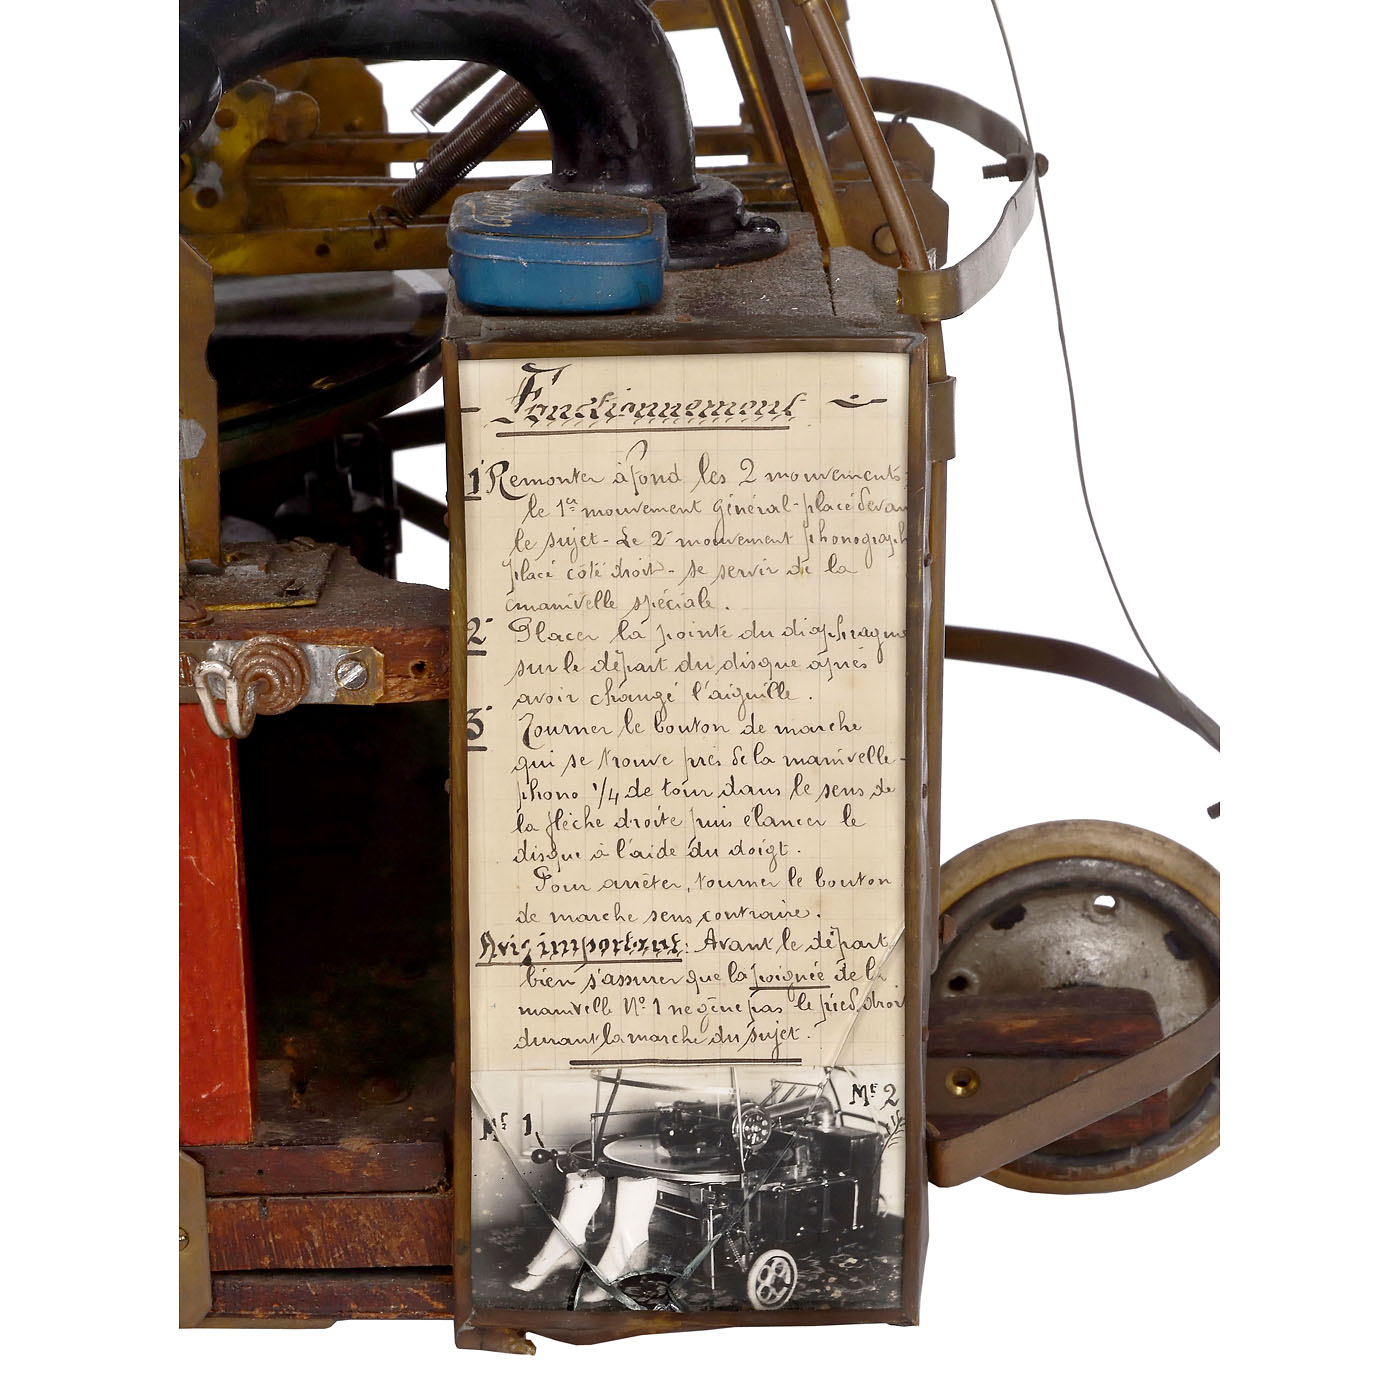 Fonctionnement
1° Remonter à fond les 2 mouvements
le 1er mouvement général - placé devan
le sujet - Le 2e mouvement phonograph
placé côté droit - se servir de la
manivelle spéciale.
2° Placer la pointe du diaphragme
sur le départ du disque après
avoir changé l'aiguille.
3° Tourner le bouton de marche
qui se trouve près de la manivelle-
phono 1/4 de tour dans le sens de
la flèche droite puis élancer le
disque à l'aide du doigt.
Pour arrêter, tourner le bouton
de marche sens contraire.
Avis important: Avant le départ
bien s'assurer que la poignée de la
manivelle N° 1 ne gène pas le pied droit
durant la marche du sujet.
Mt 1
Mt 2